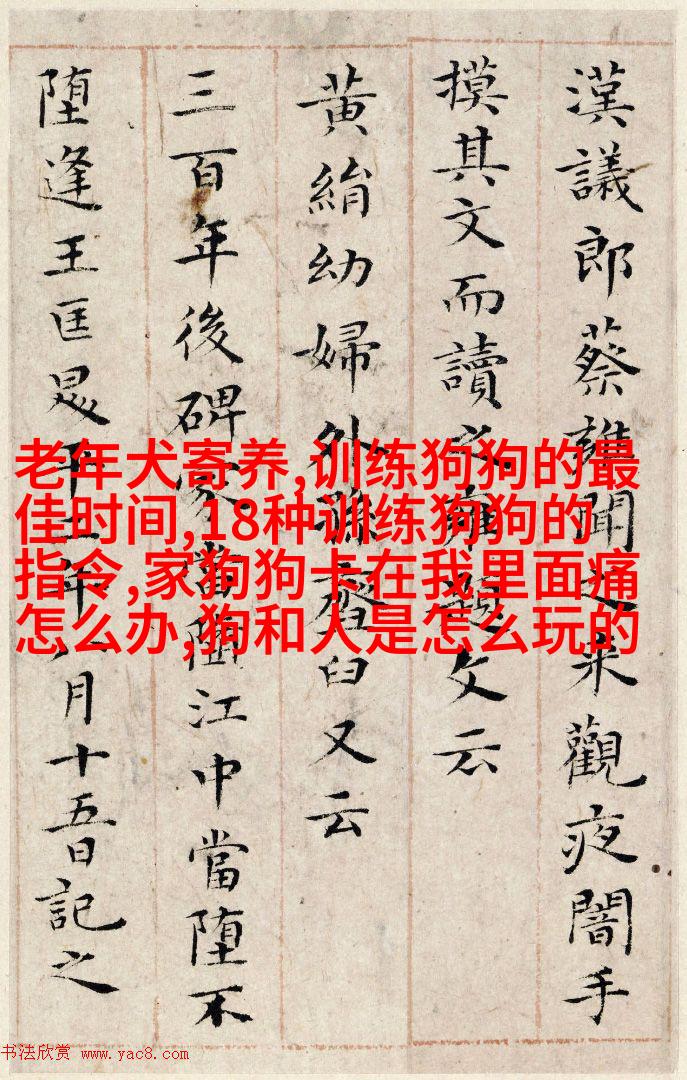 漢議郎蔡雝聞之来觀夜闇手
摸其文而讀之雍題文云
黄絹幼婦外孫齏臼又云
三百年後碑冢當墮江中當墮不
墮逢王匡昇平二年八月十五日記之
老年犬寄养,训练狗狗的最
佳时间,18种训练狗狗的
指令,家狗狗卡在我里面痛
怎么办,狗和人是怎么玩的
书法欣赏 www.yac8.com